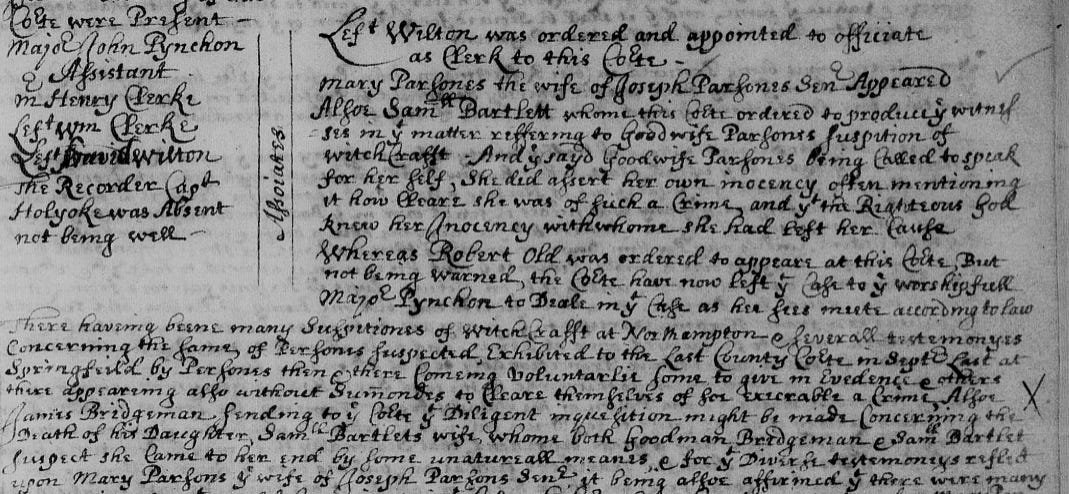 Corte were Present -
Majo^r John Pynchon
Assistant
m^r Henry Clerke
Left W^m Clerke
Left David Wilton
The Recorder Cap^t
Holyoke was Absent
not being well -
Assoiates
Lef^t Wilton was ordered and appointed to officiate
as Clerk to this Corte -
Mary Parsones the wife of Joseph Parsones Sen^r Appeared
Alsoe Sam^ll Bartlett whome this Corte ordered to produce y^e witnes
-ses in y^e matter reffering to Goodwife Parsones suspition of
witchCrafft And y^e sayd Goodwife Parsones being Called to speak
for her self, she did assert her own inocency often mentioning
it how Cleare she was of such a Crime, and y^t the Righteous God
knew her Inocency with whome she had left her Cause
Whereas Robert Old was ordered to appeare at this Corte But
not being warned, the Corte have now left y^e Case to y^e worshipfull
Majo^r Pynchon to Deale in y^e Case as hee sees meete according to law
There haveing beene many Suspitiones of WitchCrafft at Northampton & severall testemonyes
Concerning the same, of Persones suspected Exhibited to the Last County Corte in Sept^r Last at
Springfeild by Persones then & there Comeing Voluntarlie some to give in Evedence & others
there appeareing also without Sumondes to Cleare themselves of soe execrable a Crime Alsoe
James Bridgeman Sending to y^e Corte y^t Diligent inquesition might be made Concerning the
Death of his Daughter, Sam^ll Bartlets wife, whome both Goodman Bridgeman & Sam^ll Bartlet
suspect she Came to her end by some unatureall meanes, & for y^t Diverse testemonyes reflect
upon Mary Parsons y^e wife of Joseph Parsons Sen^r it being alsoe affirmed y^t there were many